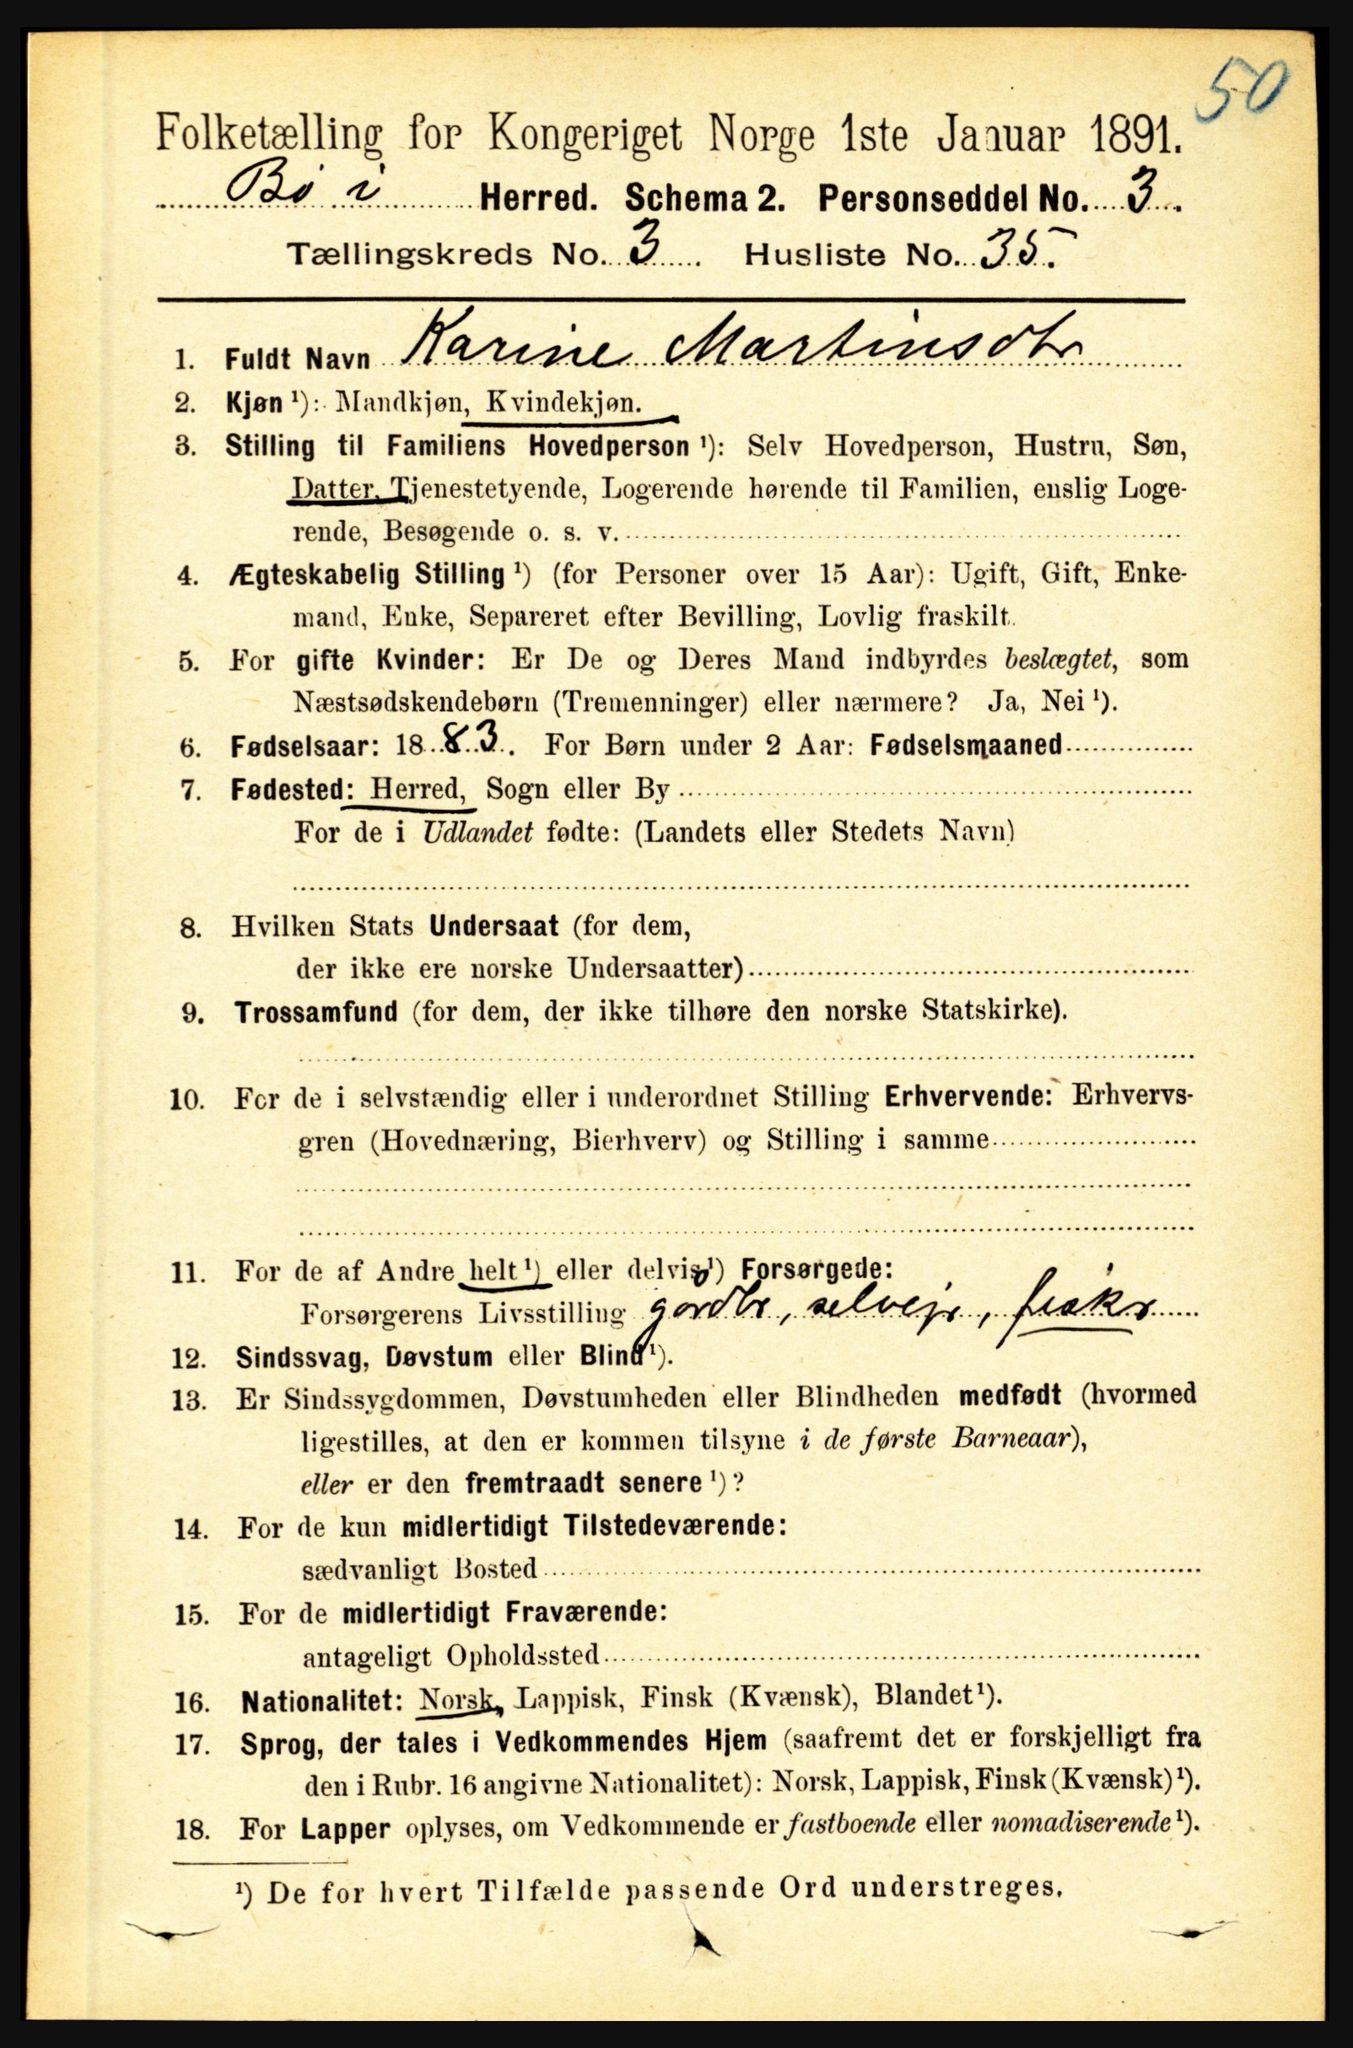 50
Folketælling for Kongeriget Norge 1ste Januar 1891.
Bø i Herred. Schema 2. Personseddel No. 3.
Tællingskreds No. 3. Husliste No. 35.
1. Fuldt Navn Karine Martinsdtr
2. Kjøn ¹): Mandkjøn, Kvindekjøn.
3. Stilling til Familiens Hovedperson ¹): Selv Hovedperson, Hustru, Søn,
Datter, Tjenestetyende, Logerende hørende til Familien, enslig Loge-
rende, Besøgende o. s. v.
4. Ægteskabelig Stilling ¹) (for Personer over 15 Aar): Ugift, Gift, Enke-
mand, Enke, Separeret efter Bevilling, Lovlig fraskilt.
5. For gifte Kvinder: Er De og Deres Mand indbyrdes beslægtet, som
Næstsødskendebørn (Tremenninger) eller nærmere? Ja, Nei ¹).
6. Fødselsaar: 1883. For Børn under 2 Aar: Fødselsmaaned
7. Fødested: Herred, Sogn eller By
For de i Udlandet fødte: (Landets eller Stedets Navn)
8. Hvilken Stats Undersaat (for dem,
der ikke ere norske Undersaatter)
9. Trossamfund (for dem, der ikke tilhøre den norske Statskirke).
10. For de i selvstændig eller i underordnet Stilling Erhvervende: Erhvervs-
gren (Hovednæring, Bierhverv) og Stilling i samme
11. For de af Andre helt ¹) eller delvis ¹) Forsørgede:
Forsørgerens Livsstilling gardbr, selvejr, fiskr
12. Sindssvag, Døvstum eller Blind ¹).
13. Er Sindssygdommen, Døvstumheden eller Blindheden medfødt (hvormed
ligestilles, at den er kommen tilsyne i de første Barneaar),
eller er den fremtraadt senere ¹)?
14. For de kun midlertidigt Tilstedeværende:
sædvanligt Bosted
15. For de midlertidigt Fraværende:
antageligt Opholdssted
16. Nationalitet: Norsk, Lappisk, Finsk (Kvænsk), Blandet ¹).
17. Sprog, der tales i Vedkommendes Hjem (saafremt det er forskjelligt fra
den i Rubr. 16 angivne Nationalitet): Norsk, Lappisk, Finsk (Kvænsk) ¹).
18. For Lapper oplyses, om Vedkommende er fastboende eller nomadiserende ¹).
¹) De for hvert Tilfælde passende Ord understreges.